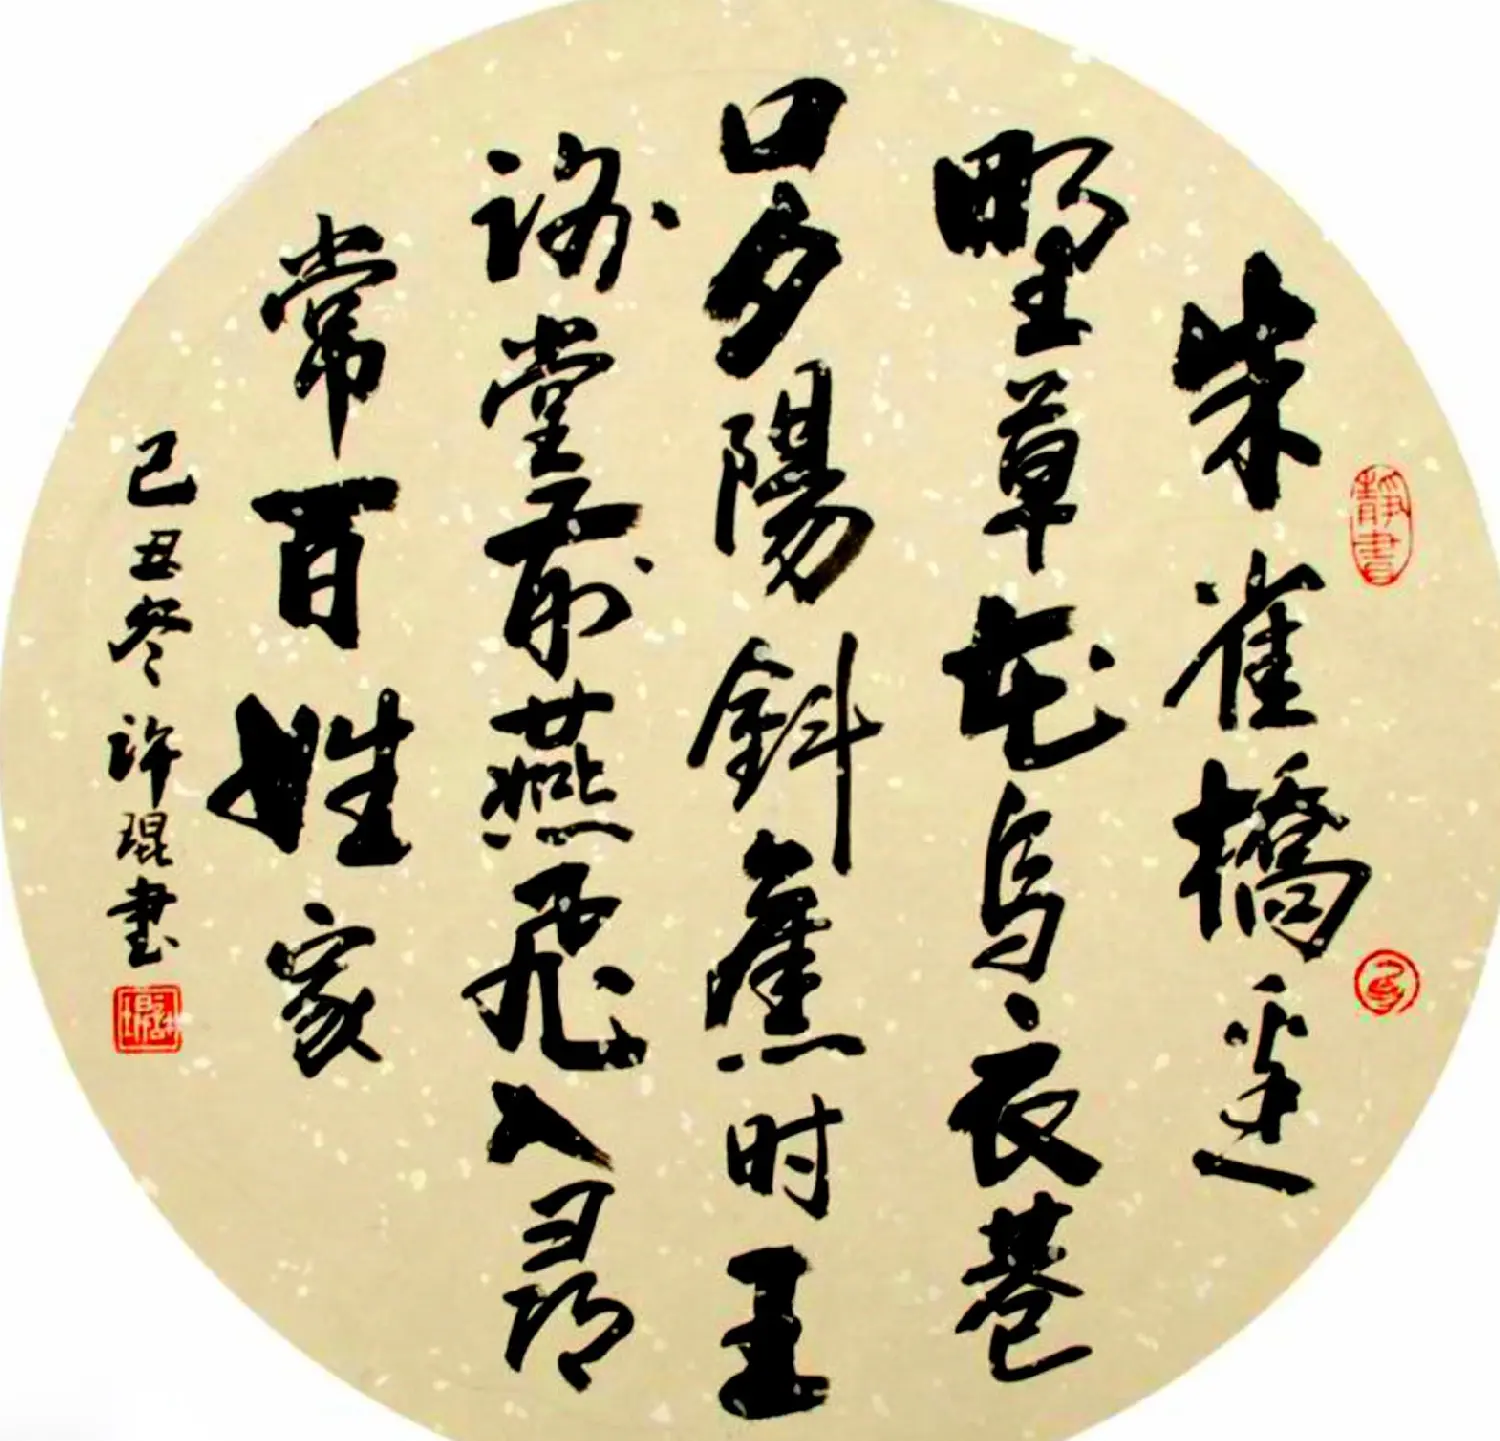 靜書
朱雀橋邊
野草花烏衣巷
口夕陽斜舊时王
謝堂前燕飛入尋
常百姓家
己丑冬許琨書